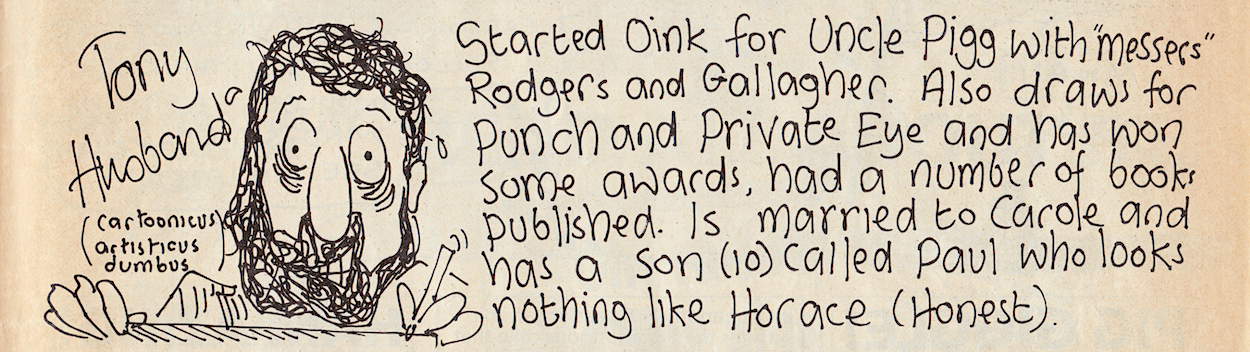 Tony
Husband
(cartoonicus
artisticus
dumbus)
Started Oink for Uncle Pigg with "messers"
Rodgers and Gallagher. Also draws for
Punch and Private Eye and has won
some awards, had a number of books
published. Is married to Carole and
has a son (10) called Paul who looks
nothing like Horace (Honest).